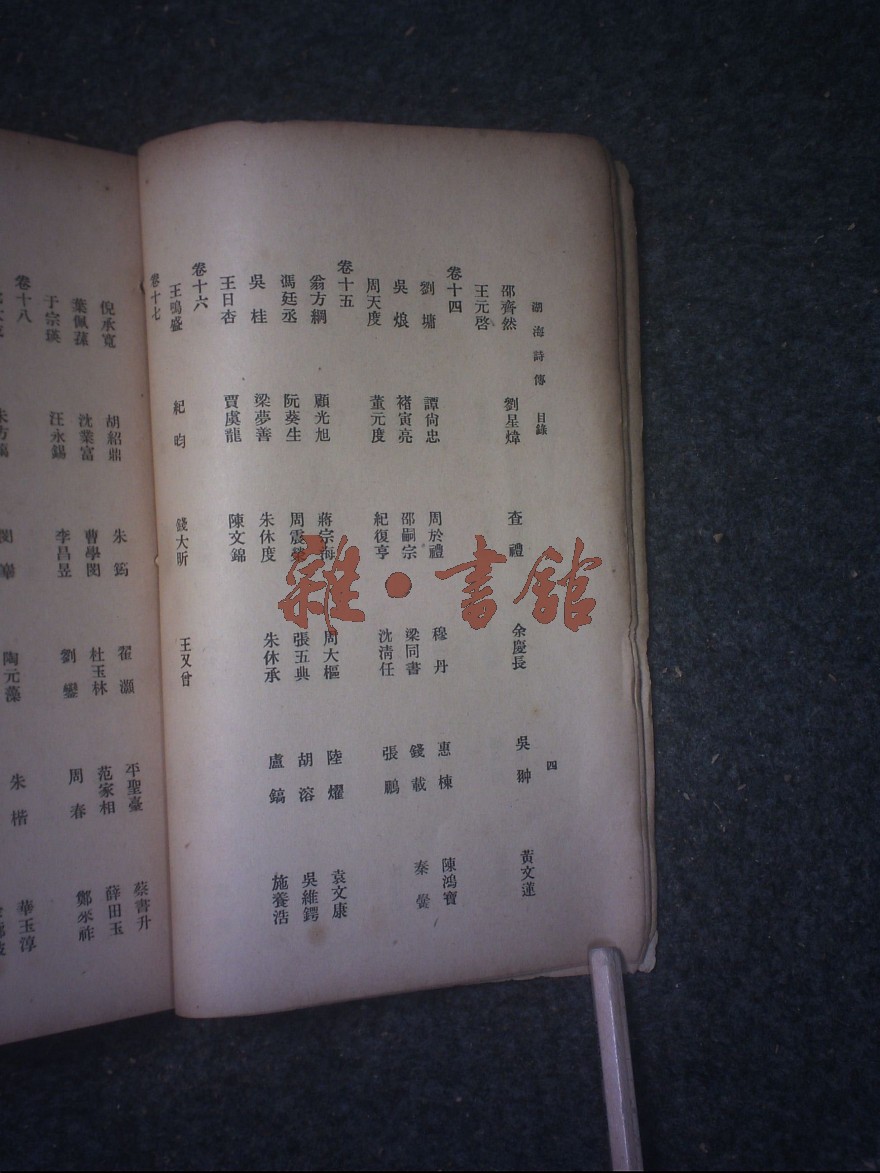 湖海詩傳 目錄 四
邵齊然 劉星煒 查禮 余慶長 吳翀 黃文蓮
王元啓
卷十四
劉墉 譚尙忠 周於禮 穆丹 惠棟 陳鴻寶
吳烺 褚寅亮 邵嗣宗 梁同書 錢載 秦黌
周天度 董元度 紀復亨 沈淸任 張鵬
卷十五
翁方綱 顧光旭 蔣宗海 周大樞 陸燿 袁文康
馮廷丞 阮葵生 周震榮 張五典 胡溶 吳維鍔
吳桂 梁夢善 朱休度 朱休承 盧鎬 施養浩
王日杏 賈虞龍 陳文錦
卷十六
王鳴盛 紀昀 錢大昕 王又曾
卷十七
倪承寬 胡紹鼎 朱筠 翟灝 平聖臺 蔡書升
葉佩蓀 沈業富 曹學閔 杜玉林 范家相 薛田玉
于宗瑛 汪永錫 李昌昱 劉鑾 周春 鄭釆祚
卷十八
陶元藻 朱楷 華玉淳
雜·書館